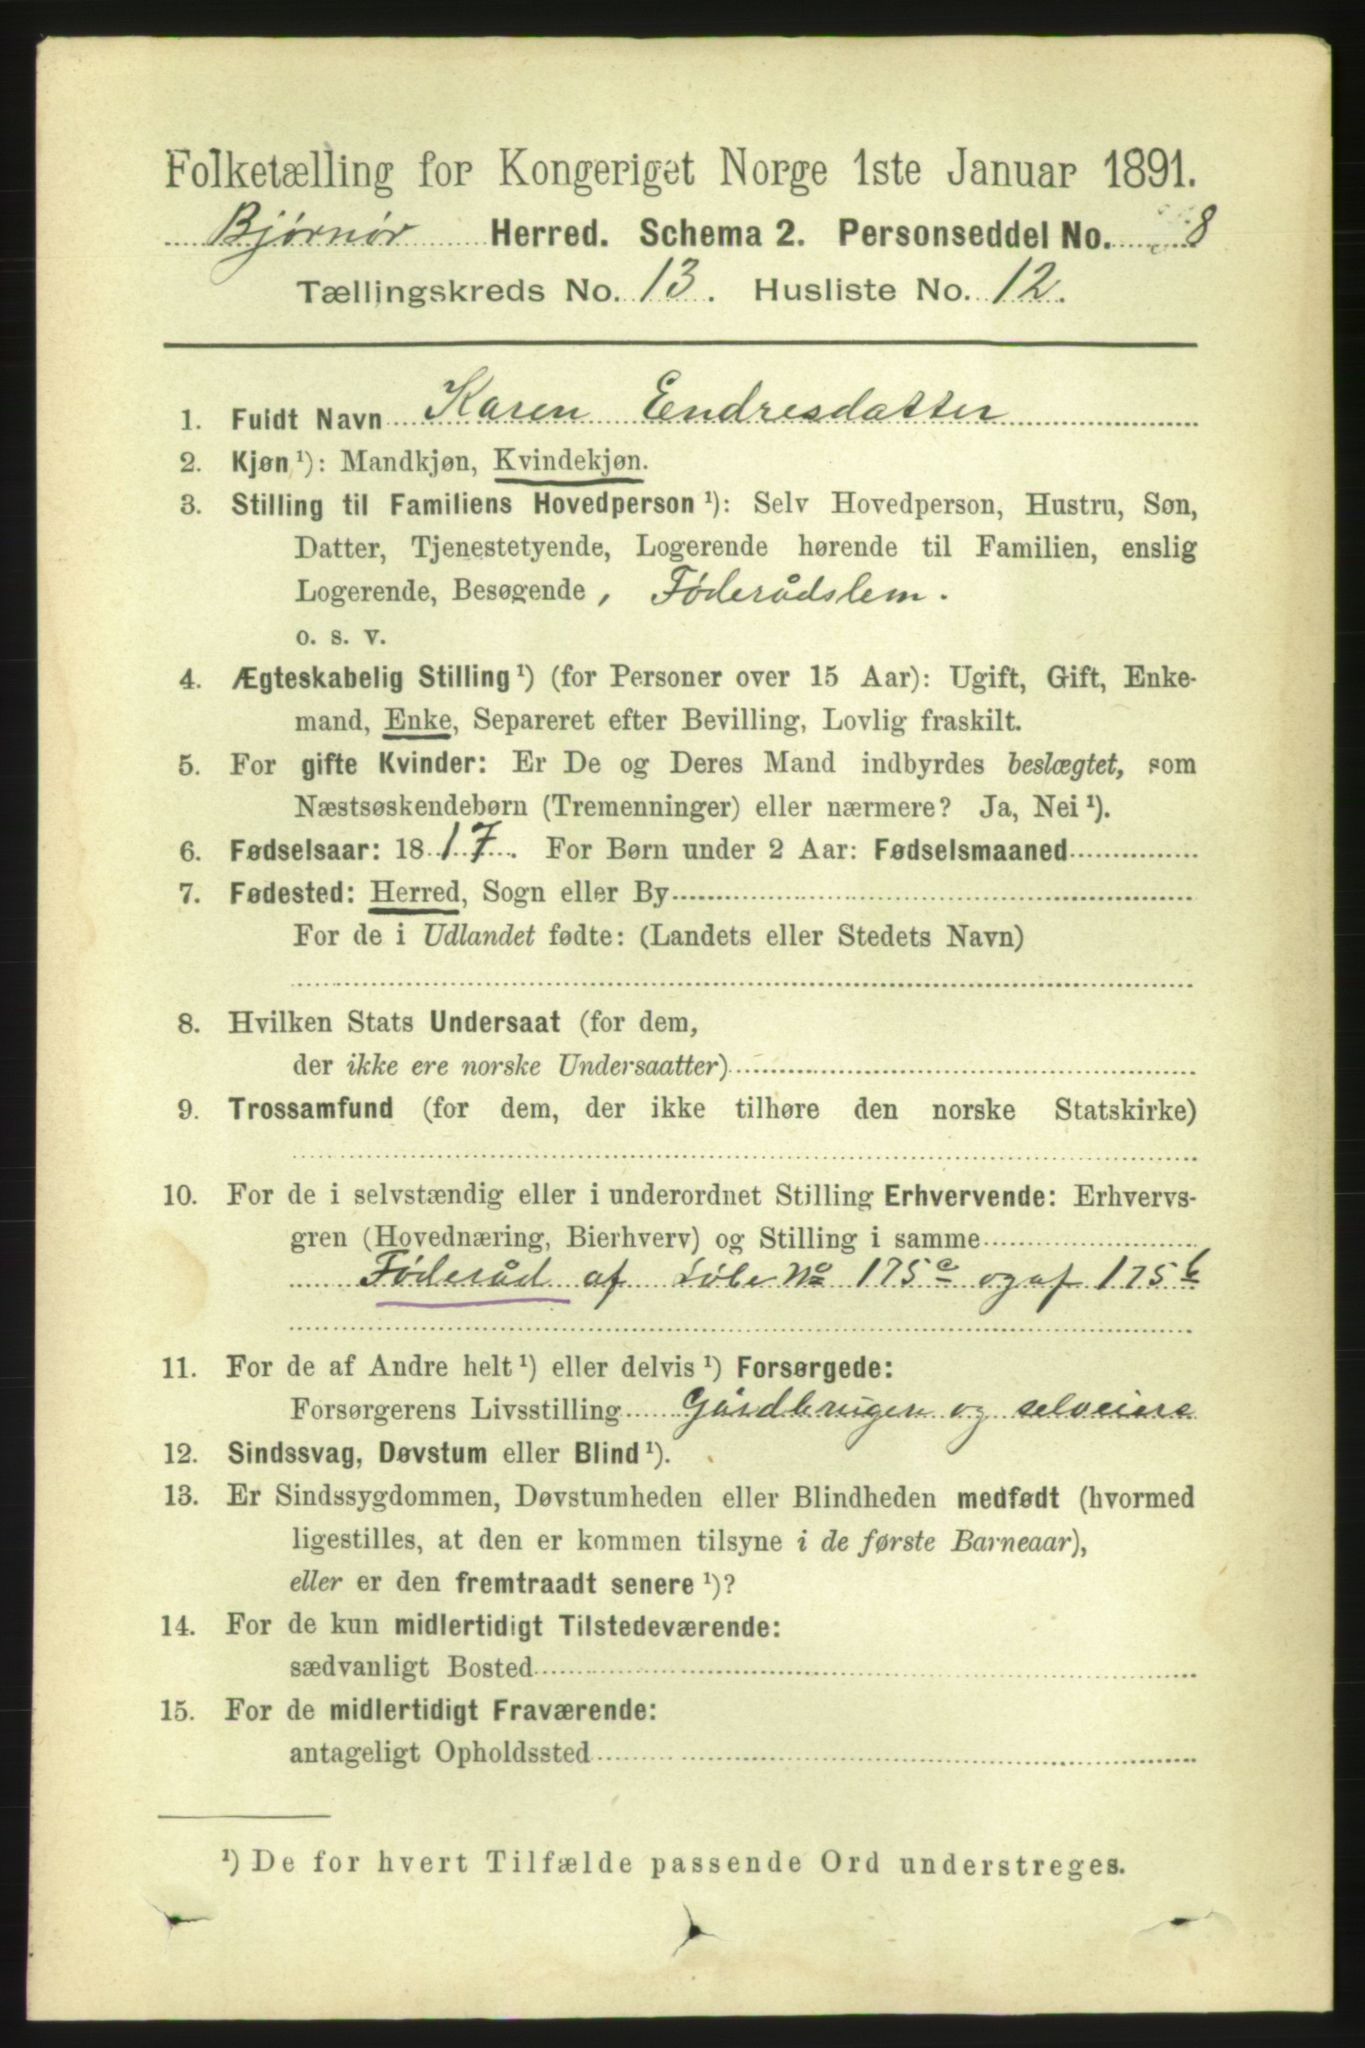 Folketælling for Kongeriget Norge 1ste Januar 1891.
Bjørnør Herred. Schema 2. Personseddel No. 8
Tællingskreds No. 13. Husliste No. 12.
1. Fuldt Navn Karen Endresdatter
2. Kjøn ¹): Mandkjøn, Kvindekjøn.
3. Stilling til Familiens Hovedperson ¹): Selv Hovedperson, Hustru, Søn,
Datter, Tjenestetyende, Logerende hørende til Familien, enslig
Logerende, Besøgende, Føderådslem.
o. s. v.
4. Ægteskabelig Stilling ¹) (for Personer over 15 Aar): Ugift, Gift, Enke-
mand, Enke, Separeret efter Bevilling, Lovlig fraskilt.
5. For gifte Kvinder: Er De og Deres Mand indbyrdes beslægtet, som
Næstsøskendebørn (Tremenninger) eller nærmere? Ja, Nei ¹).
6. Fødselsaar: 1817. For Børn under 2 Aar: Fødselsmaaned
7. Fødested: Herred, Sogn eller By
For de i Udlandet fødte: (Landets eller Stedets Navn)
8. Hvilken Stats Undersaat (for dem,
der ikke ere norske Undersaatter)
9. Trossamfund (for dem, der ikke tilhøre den norske Statskirke)
10. For de i selvstændig eller i underordnet Stilling Erhvervende: Erhvervs-
gren (Hovednæring, Bierhverv) og Stilling i samme
Føderåd af Løbe No 175 og af 175 b
11. For de af Andre helt ¹) eller delvis ¹) Forsørgede:
Forsørgerens Livsstilling Gårdbruger og selveiere
12. Sindssvag, Døvstum eller Blind ¹).
13. Er Sindssygdommen, Døvstumheden eller Blindheden medfødt (hvormed
ligestilles, at den er kommen tilsyne i de første Barneaar),
eller er den fremtraadt senere ¹)?
14. For de kun midlertidigt Tilstedeværende:
sædvanligt Bosted
15. For de midlertidigt Fraværende:
antageligt Opholdssted
¹) De for hvert Tilfælde passende Ord understreges.